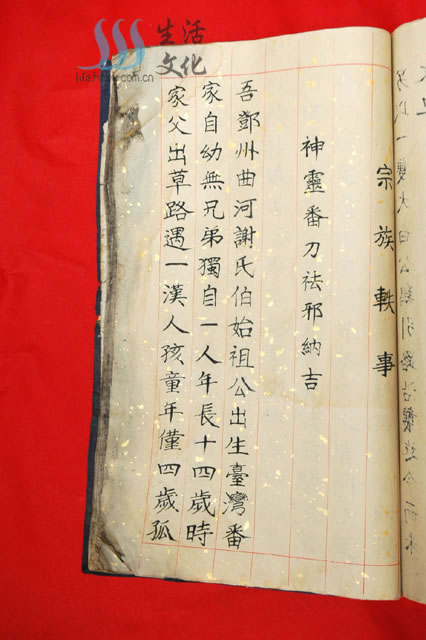 生活
文化
宗族軼事
神靈番刀祛邪納吉
吾鄧州曲河謝氏伯始祖公出生臺灣番
家自幼無兄弟獨自一人年長十四歲時
家父出草路遇一漢人孩童年僅四歲孤